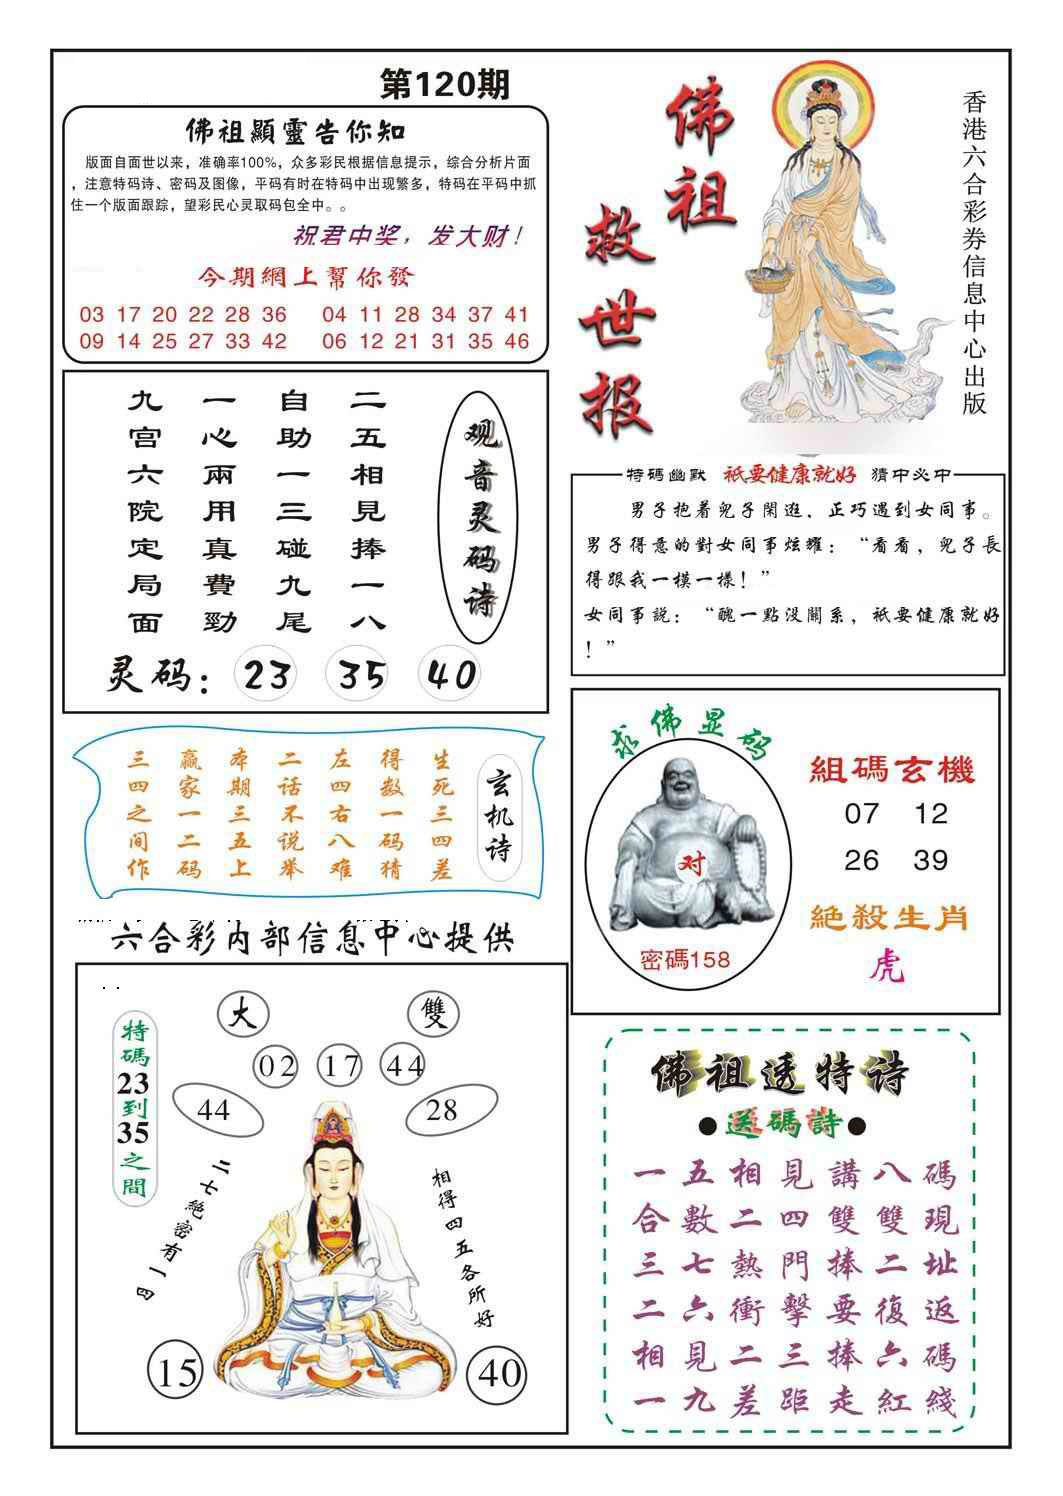 第120期
佛祖顯靈告你知
版面自面世以来，准确率100%，众多彩民根据信息提示，综合分析片面
，注意特码诗、密码及图像，平码有时在特码中出现繁多，特码在平码中抓
住一个版面跟踪，望彩民心灵取码包全中。。
祝君中奖，发大财！
今期網上幫你發
03 17 20 22 28 36 04 11 28 34 37 41
09 14 25 27 33 42 06 12 21 31 35 46
佛祖
救世报
香港六合彩券信息中心出版
观音灵码诗
二五相見捧一八
自助一三碰九尾
一心兩用真費勁
九宫六院定局面
灵码：23 35 40
特碼幽默 祇要健康就好 猜中必中
男子抱着兒子閑逛，正巧遇到女同事。
男子得意的對女同事炫耀：“看看，兒子長
得跟我一模一樣！”
女同事説：“醜一點没關系，祇要健康就好
！”
玄机诗
生死三四差
得数一码猜
左四右八难
二话不说举
本期三五上
赢家一二码
三四之间作
求佛显码
对
密碼158
組碼玄機
07 12
26 39
絕殺生肖
虎
六合彩内部信息中心提供
特碼23到35之間
大 雙
02 17 44
44 28
二七絕密有一四
相得四五各所好
15 40
佛祖透特诗
●送碼詩●
一五相見講八碼
合數二四雙雙現
三七熱門捧二址
二六衝擊要復返
相見二三捧六碼
一九差距走紅綫